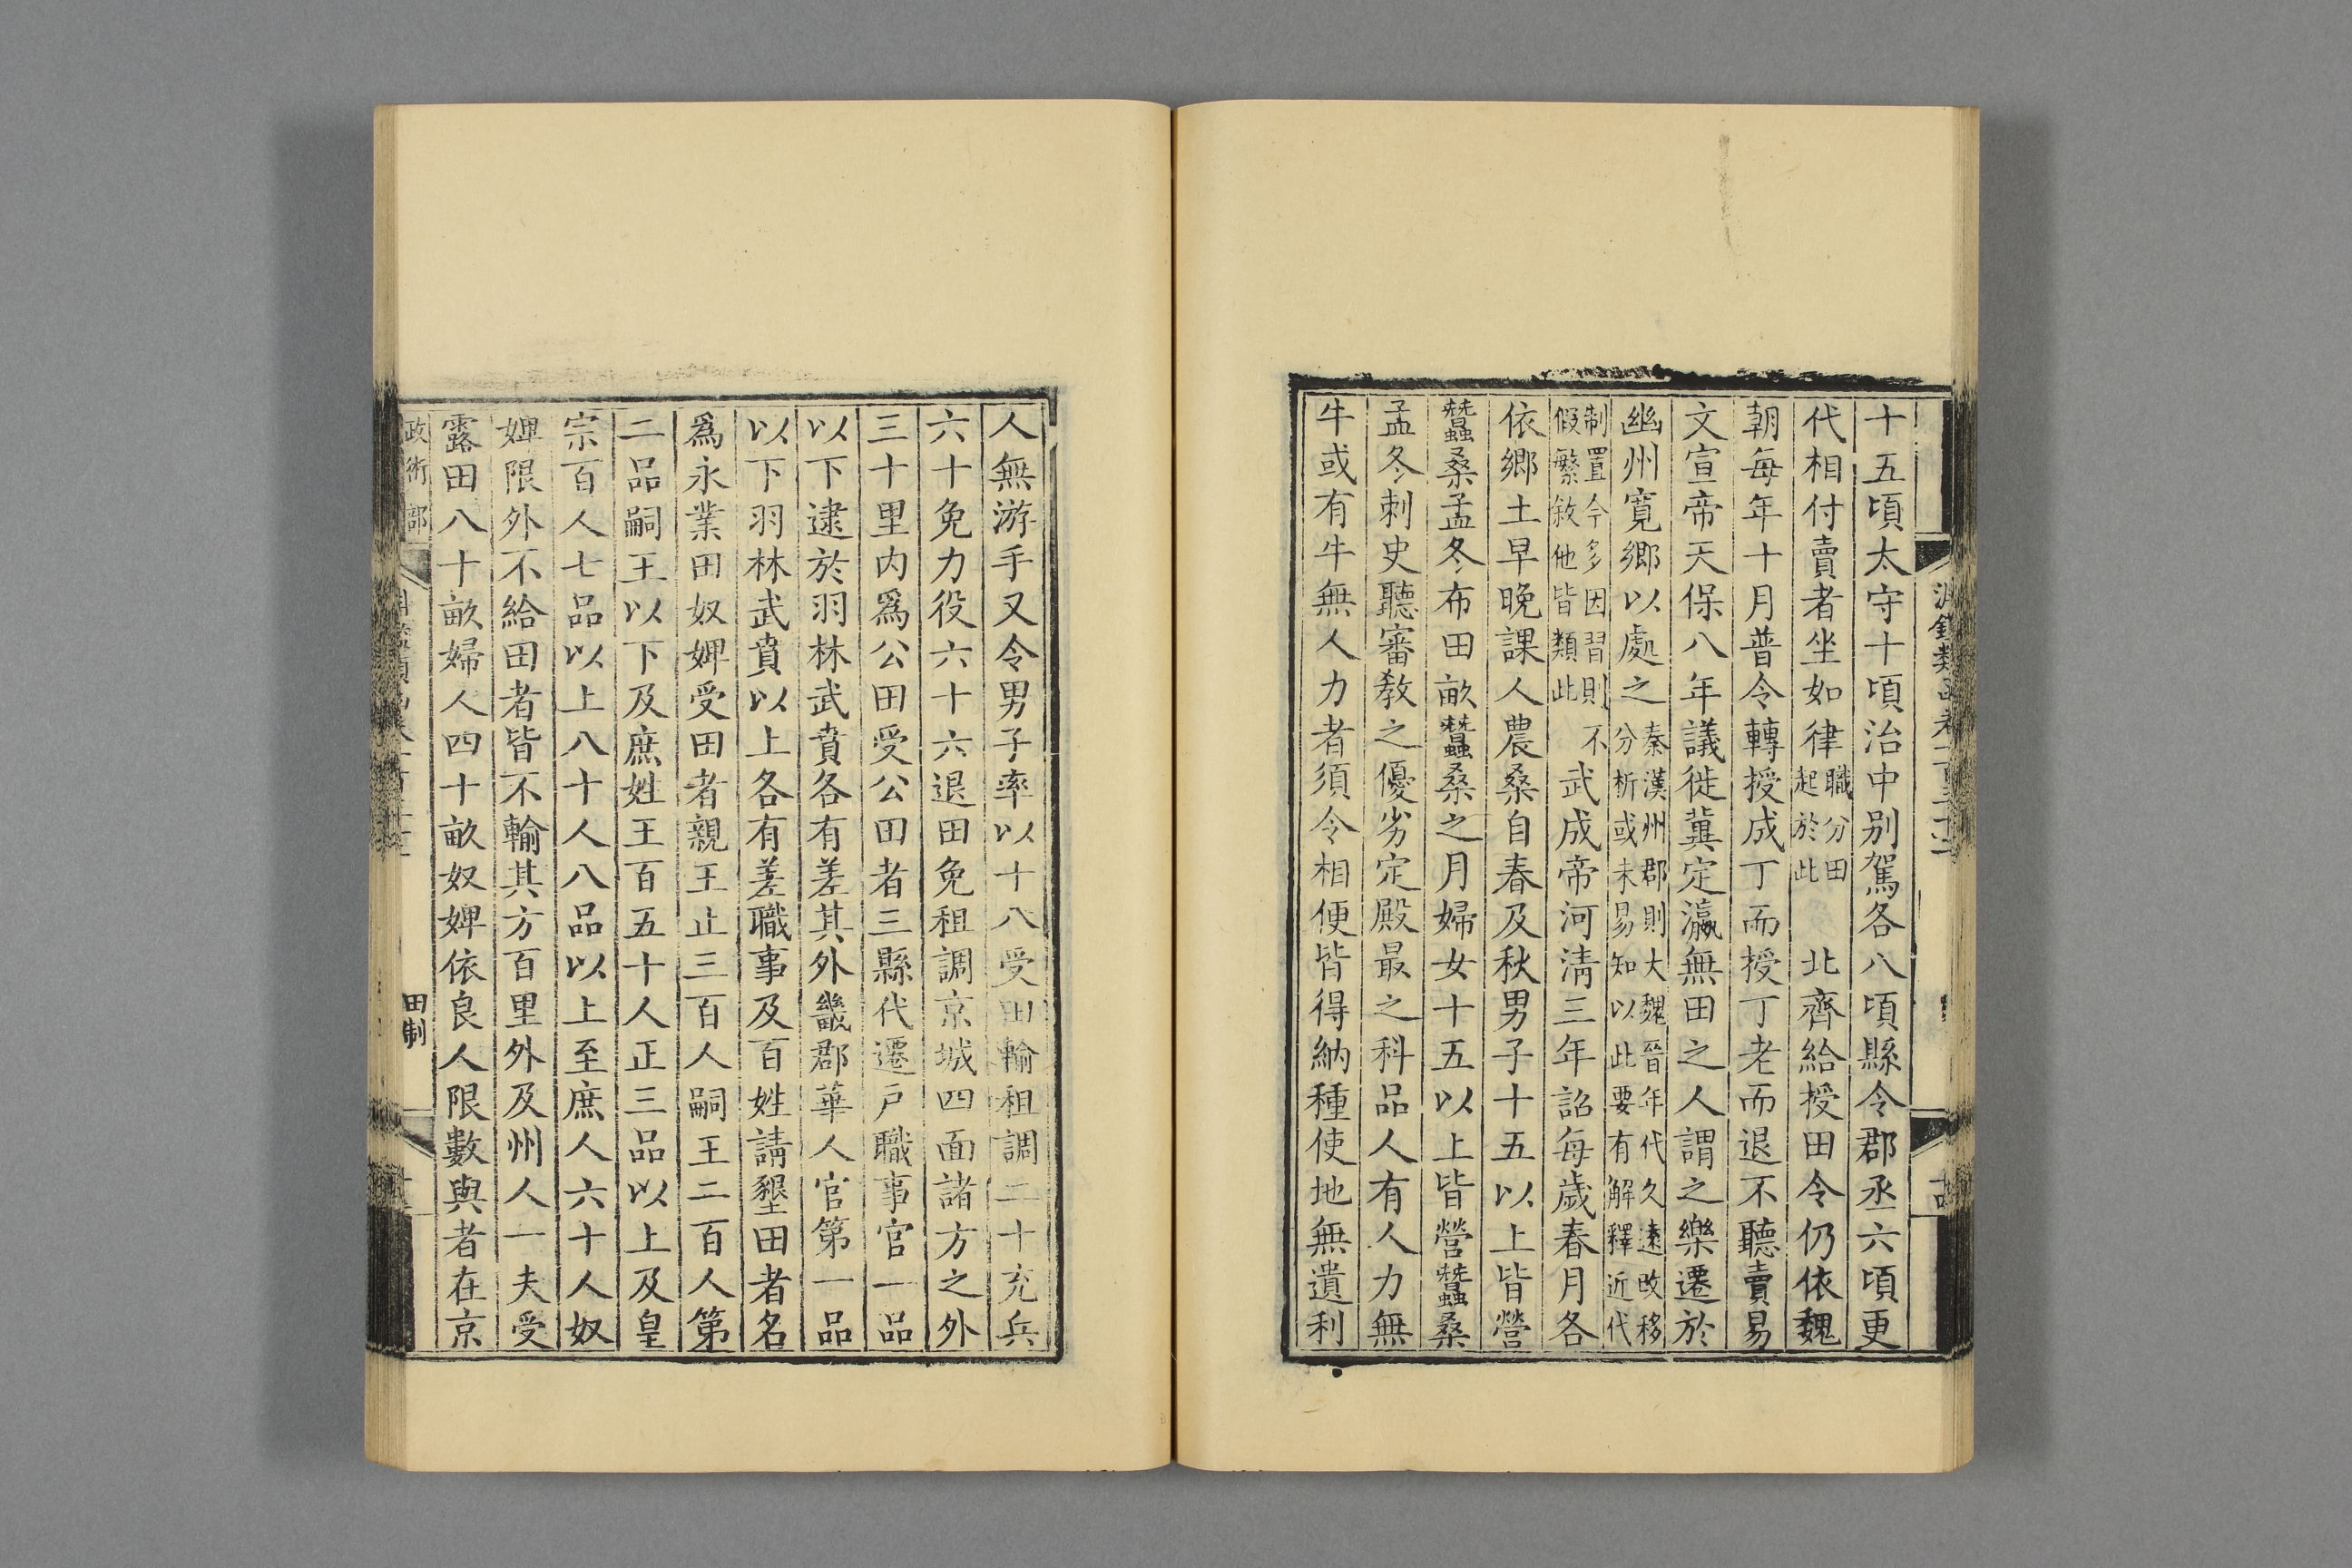 淵鑑類函卷
十五頃太守十頃治中别駕各八頃縣令郡丞六頃更
代相付賣者坐如律職分田
起於此
北齊給授田令仍依魏
朝每年十月普令轉授成丁而授丁老而退不聽賣易
文宣帝天保八年議徙冀定瀛無田之人謂之樂遷於
幽州寛鄉以處之秦漢州郡則大魏晉年代久遠改移
分析或未易知以此要有解釋近代
制置今多因習則不
假繁敘他皆類此
武成帝河清三年詔每歲春月各
依鄉土早晚課人農桑自春及秋男子十五以上皆營
蠶桑孟冬布田畝蠶桑之月婦女十五以上皆營蠶桑
孟冬刺史聽審教之優劣定殿最之科品人有人力無
牛或有牛無人力者須令相便皆得納種使地無遺利
人無游手又令男子率以十八受田輸租調二十充兵
六十免力役六十六退田免租調京城四面諸方之外
三十里内爲公田受公田者三縣代遷户職事官一品
以下逮於羽林武賁各有差其外畿郡華人官第一品
以下羽林武賁以上各有差職事及百姓請墾田者名
爲永業田奴婢受田者親王止三百人嗣王二百人第
二品嗣王以下及庶姓王百五十人正三品以上及皇
宗百人七品以上八十人八品以上至庶人六十人奴
婢限外不給田者皆不輸其方百里外及州人一夫受
露田八十畝婦人四十畝奴婢依良人限數與者在京
政術部
田制